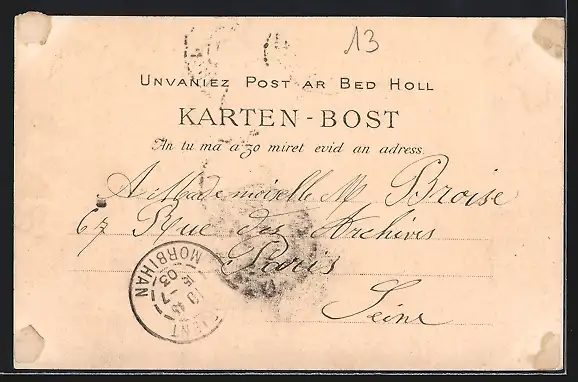 13
UNVANIEZ POST AR BED HOLL
KARTEN-BOST
An tu ma a zo miret evid an adress.
A Mademoiselle M Broise
67 Rue des Archives
Paris
Seine
MORBIHAN
03